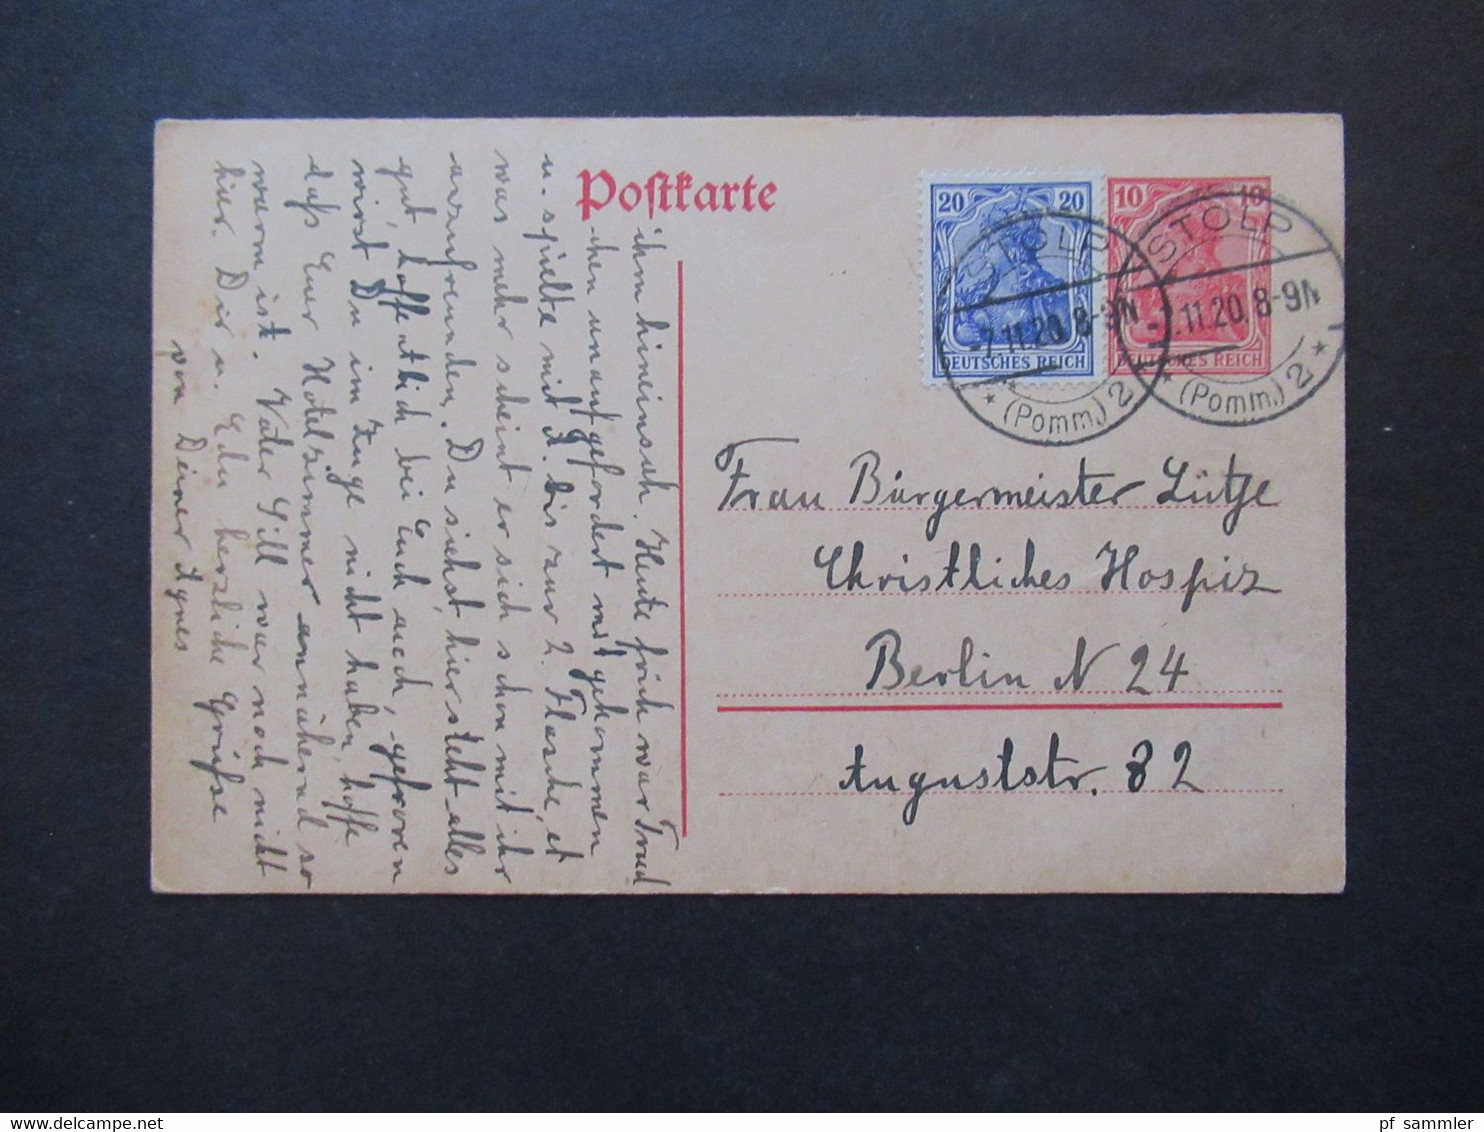 Postkarte
20 20
DEUTSCHES REICH
10 10
DEUTSCHES REICH
STOLP
-7.11.20. 8-9N
* (Pomm.) 2 *
STOLP
-7.11.20. 8-9N
* (Pomm.) 2 *
Frau Bürgermeister Lütje
Christliches Hospiz
Berlin N 24
Auguststr. 82
ihm hineinsah. Heute früh war Trud
chen unaufgefordert mitgekommen
u. spielte mit A. bis zur 2. Flasche, et
was mehr scheint er sich schon mit ihr
anzufreunden. Du siehst, hier steht alles
gut, hoffentlich bei Euch auch, gefroren
wirst Du im Zuge nicht haben, hoffe
daß Euer Hotelzimmer annähernd so
warm ist. Vater Sill war noch nicht
hier. Dir u. Edu herzliche Grüße
von Deiner Agnes.
pf_sammler